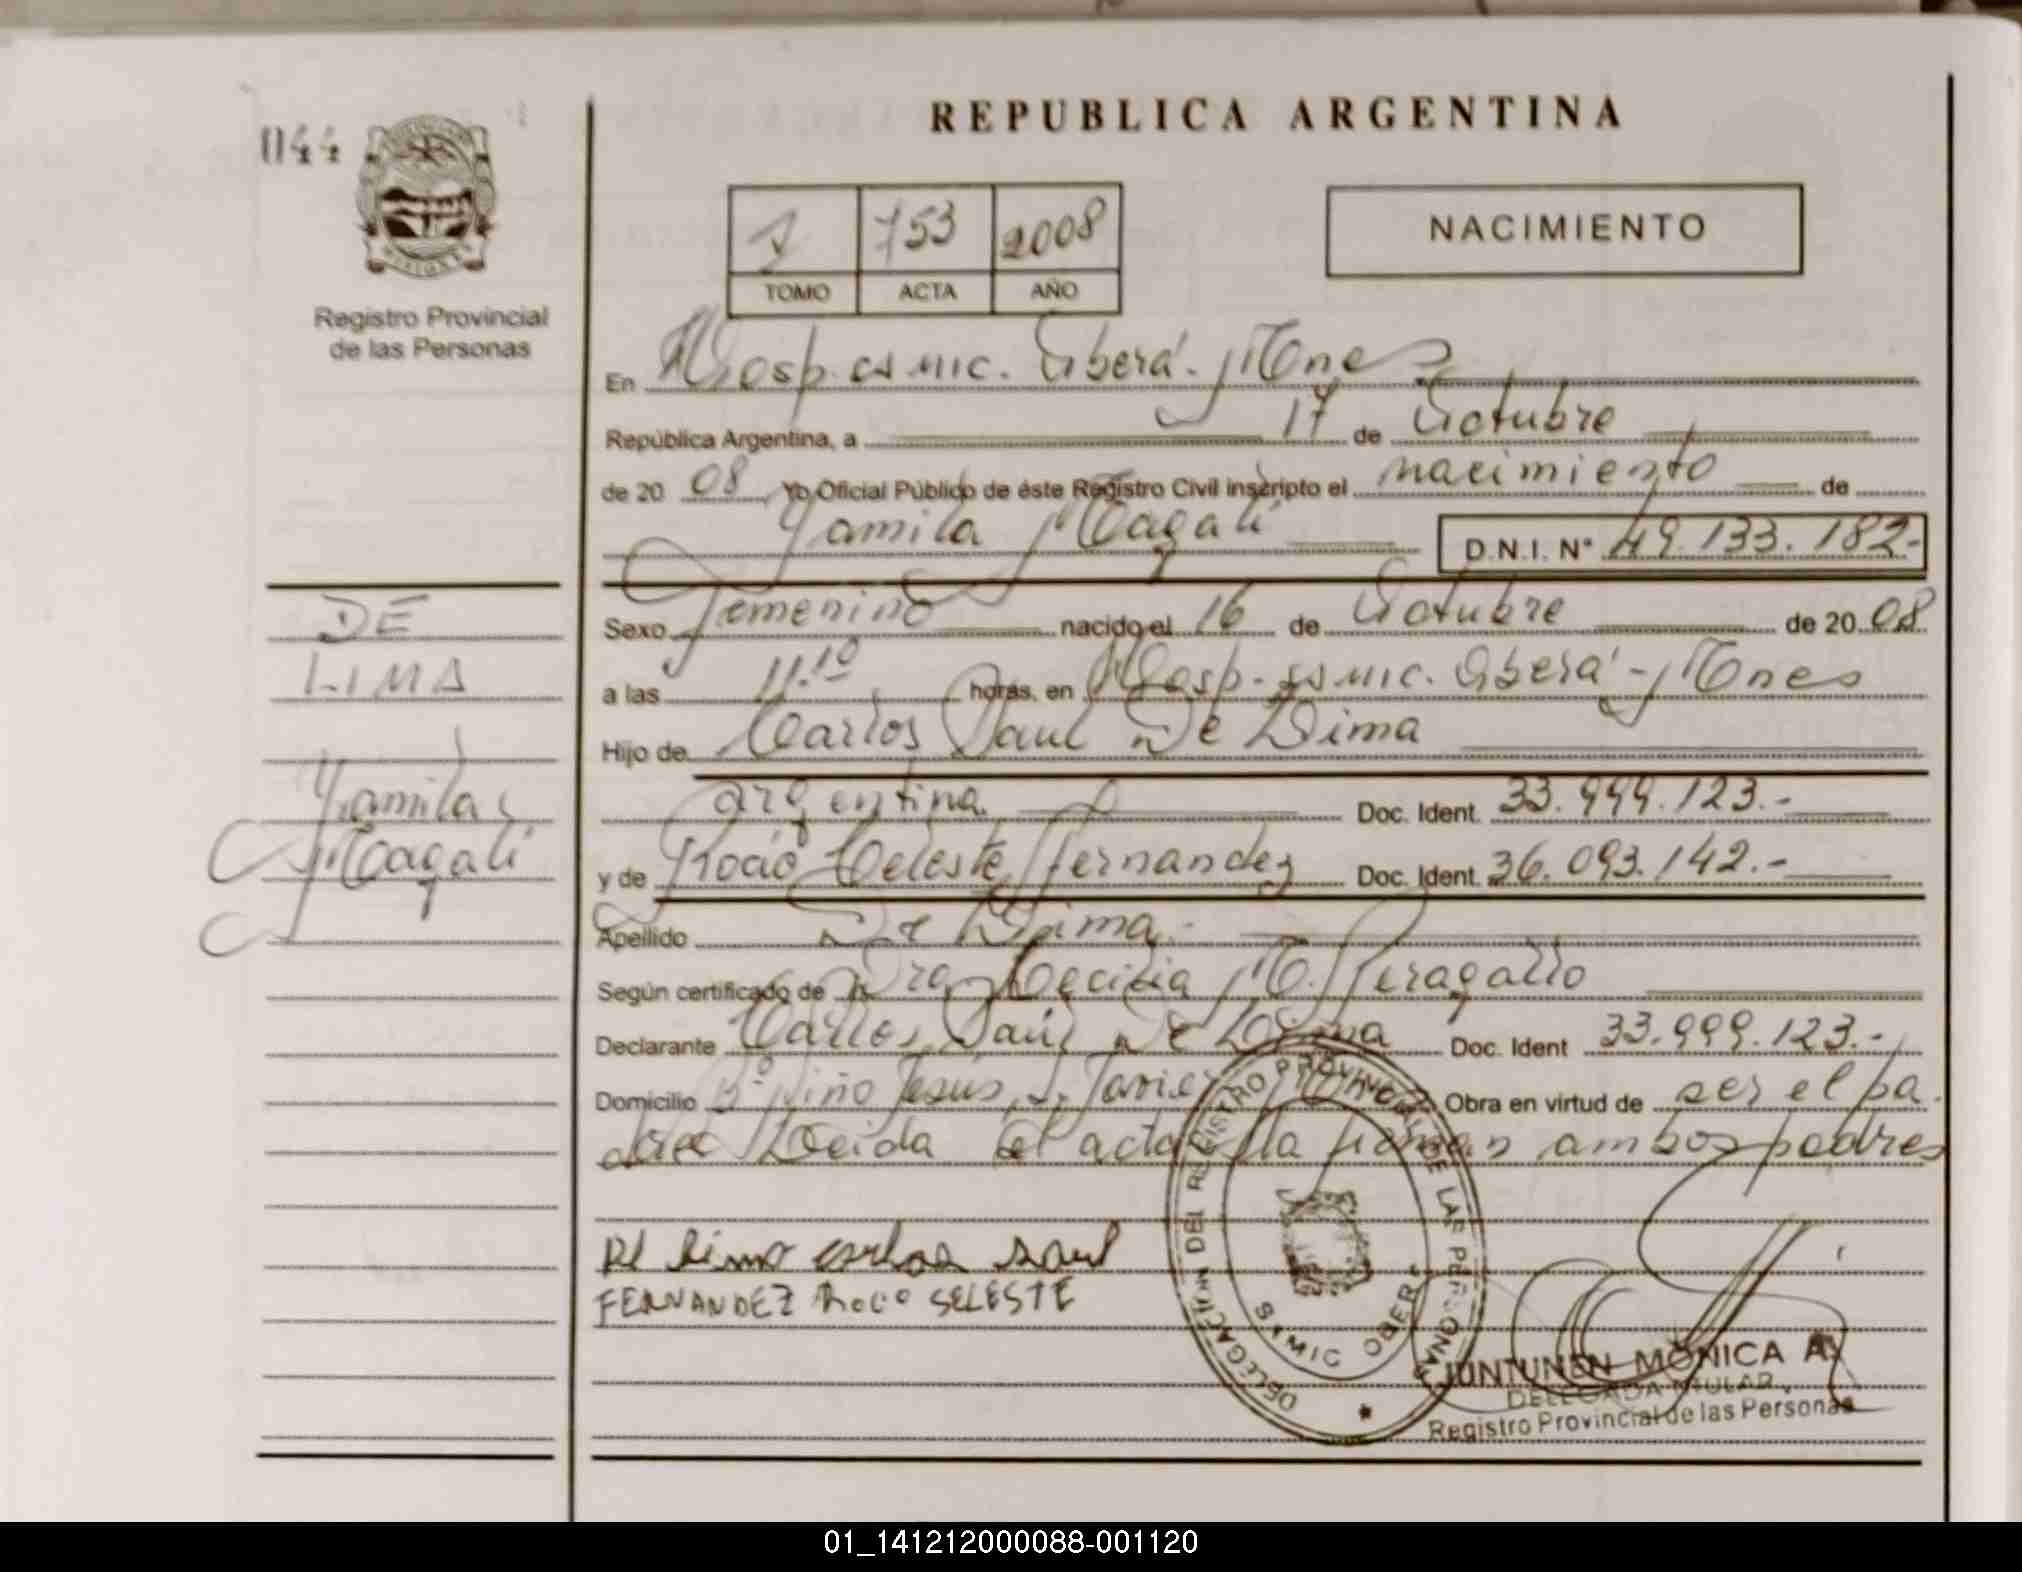 REPUBLICA ARGENTINA
1144
1 753 2008
TOMO ACTA AÑO
NACIMIENTO
Registro Provincial
de las Personas
En Hosp. SAMIC. Oberá. Mnes
República Argentina, a 17 de Octubre
de 20 08 Yo Oficial Público de éste Registro Civil inscripto el nacimiento de
Yamila Magali D.N.I. N° 49.133.182.-
Sexo Femenino nacido el 16 de Octubre de 20 08
a las 11.10 horas, en Hosp. SAMIC. Oberá - Mnes
Hijo de Carlos Saul De Lima
argentina Doc. Ident. 33.999.123.-
y de Rocio Celeste Fernandez Doc. Ident. 36.093.142.-
Apellido De Lima.-
Según certificado de Dra. Cecilia M. Peragallo
Declarante Carlos Saúl De Lima Doc. Ident 33.999.123.-
Domicilio Bº Niño Jesús, S. Javier Obra en virtud de ser el pa
dre Leida el acta la firman ambos padres
DE
LIMA
Yamila
Magali
De Lima Carlos Saul
FERNANDEZ ROCIO SELESTE
DELEGACION DEL REGISTRO PROVINCIAL DE LAS PERSONAS
SAMIC OBERA
JUNTUNEN MONICA A.
DELEGADA TITULAR
Registro Provincial de las Personas
01_141212000088-001120